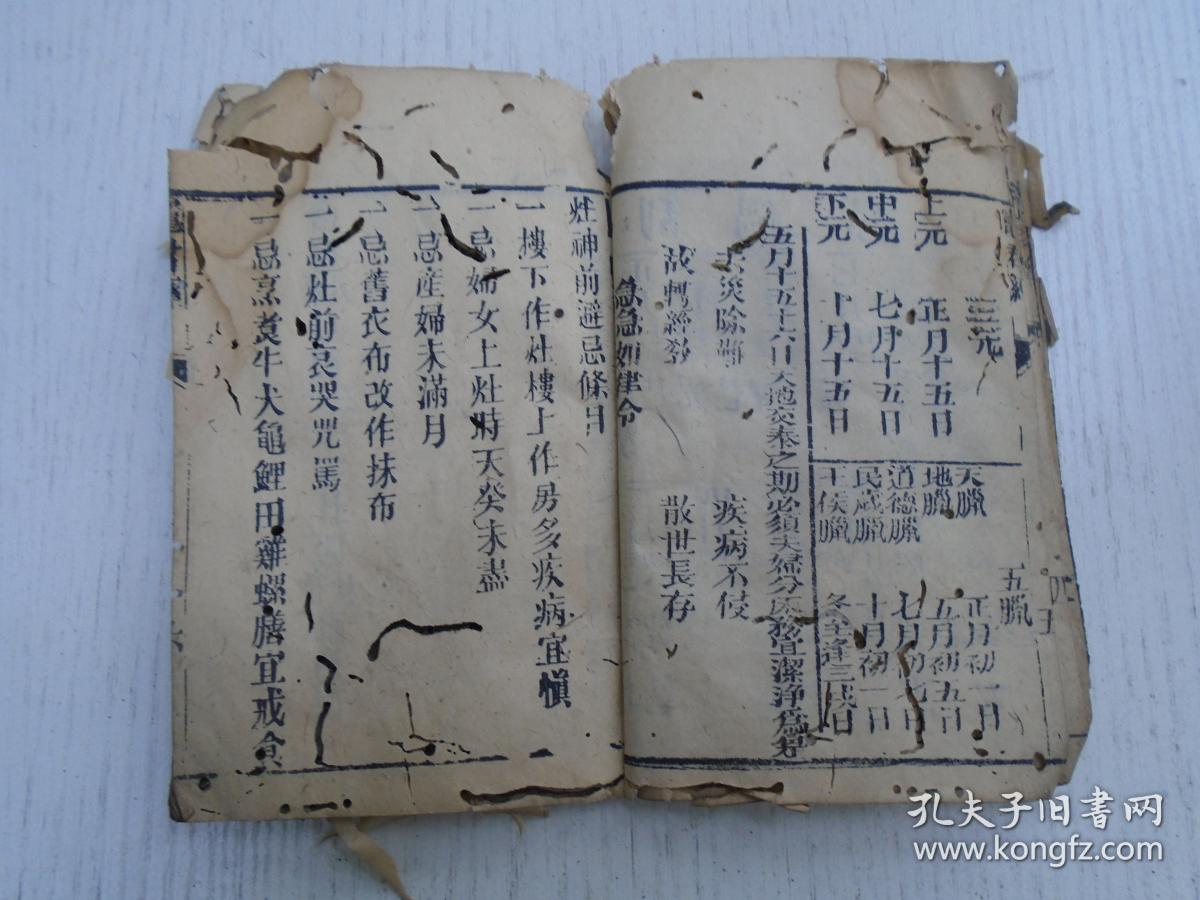 三元
上元 正月十五日
中元 七月十五日
下元 十月十五日
五臘
天臘 正月初一日
地臘 五月初五日
道德臘 七月初七日
民歲臘 十月初一日
王侯臘 冬至逢三戌日
五月十五十六日天地交泰之期必須夫婦分床務宜潔淨爲是
去災除 疾病不侵
故轉經 散世長存
急急如律令
灶神前避忌條目
一樓下作灶樓上作房多疾病宜愼
一忌婦女上灶時天癸未盡
一忌産婦未滿月
一忌舊衣布改作抹布
一忌灶前哀哭咒罵
一忌烹煮牛犬龜鯉田雞螺膳宜戒食
孔夫子旧書网
www.kongfz.com